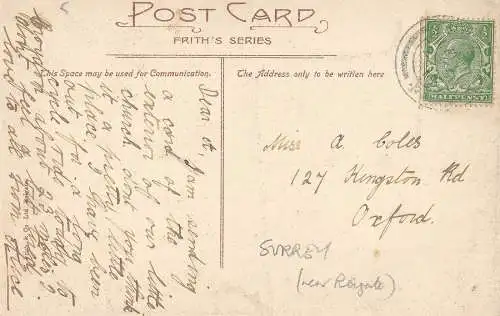 POST CARD
FRITH'S SERIES
This Space may be used for Communication.
The Address only to be written here
HALFPENNY
Dear A, I am sending
a card of the
exterior of our little
church, don't you think
it a pretty little
place, I have been
out for a long
cycle ride today to
about 23 miles?
don't feel tired
love to all from
Miss A Coles
127 Kingston Rd
Oxford.
SURREY
(near Reigate).